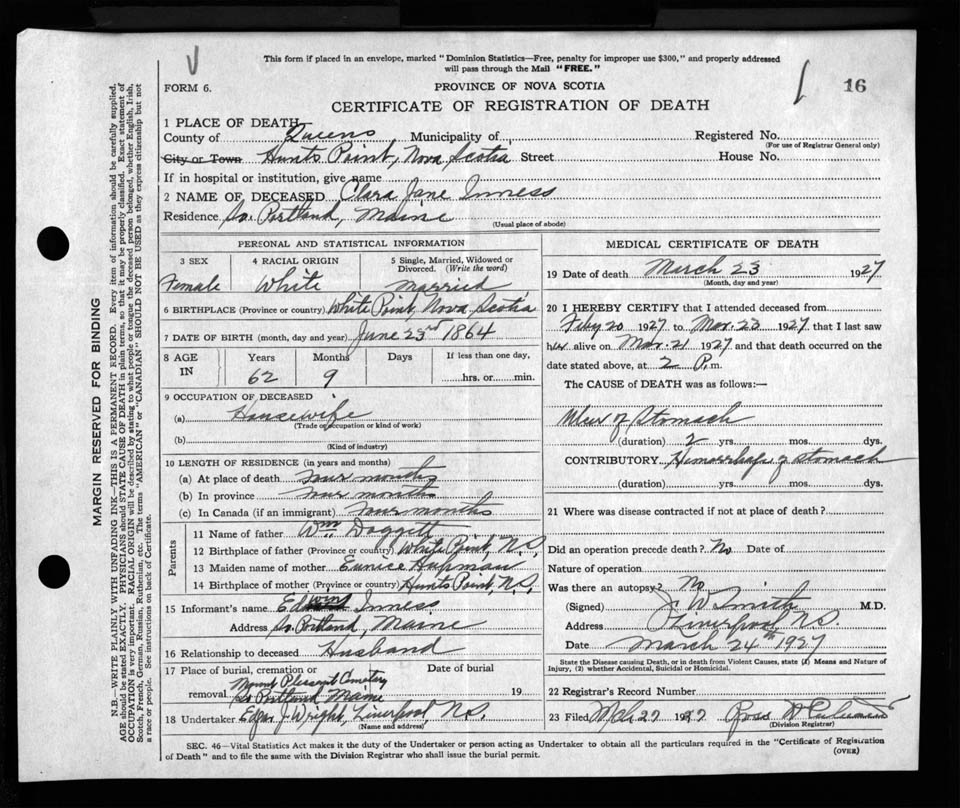 This form if placed in an envelope, marked "Dominion Statistics—Free, penalty for improper use $300," and properly addressed
will pass through the Mail "FREE."
FORM 6.
PROVINCE OF NOVA SCOTIA
16
CERTIFICATE OF REGISTRATION OF DEATH
1 PLACE OF DEATH
County of Queens Municipality of Registered No.
(For use of Registrar General only)
City or Town Hunts Point, Nova Scotia Street House No.
If in hospital or institution, give name
2 NAME OF DECEASED Clara Jane Inness
Residence So. Portland, Maine
(Usual place of abode)
PERSONAL AND STATISTICAL INFORMATION
3 SEX 4 RACIAL ORIGIN 5 Single, Married, Widowed or
Divorced. (Write the word)
Female White Married
6 BIRTHPLACE (Province or country) White Point, Nova Scotia
7 DATE OF BIRTH (month, day and year) June 23rd 1864
8 AGE Years Months Days If less than one day,
IN 62 9 hrs. or min.
9 OCCUPATION OF DECEASED
(a) Housewife
(Trade or occupation or kind of work)
(b)
(Kind of industry)
10 LENGTH OF RESIDENCE (in years and months)
(a) At place of death four months
(b) In province four months
(c) In Canada (if an immigrant) four months
Parents
11 Name of father Wm. Doggett
12 Birthplace of father (Province or country) White Point, N.S.
13 Maiden name of mother Eunice Hupman
14 Birthplace of mother (Province or country) Hunts Point, N.S.
15 Informant's name Edwin Inness
Address So. Portland, Maine
16 Relationship to deceased Husband
17 Place of burial, cremation or Date of burial
removal Mount Pleasant Cemetery
So Portland Maine 19
18 Undertaker Edgar J. Wright, Liverpool, N.S.
(Name and address)
MEDICAL CERTIFICATE OF DEATH
19 Date of death March 23 1927
(Month, day and year)
20 I HEREBY CERTIFY that I attended deceased from
Feby 20 1927 to Mar. 23 1927 that I last saw
her alive on Mar. 21 1927 and that death occurred on the
date stated above, at 2 P. m.
The CAUSE of DEATH was as follows:—
Ulcer of Stomach
(duration) 2 yrs. mos. dys.
CONTRIBUTORY Hemorrhage of stomach
(duration) yrs. mos. dys.
21 Where was disease contracted if not at place of death?
Did an operation precede death? No Date of
Nature of operation
Was there an autopsy? No
(Signed) J W Smith M.D.
Address Liverpool N.S.
Date March 24th 1927
State the Disease causing Death, or in death from Violent Causes, state (1) Means and Nature of
Injury, (2) whether Accidental, Suicidal or Homicidal.
22 Registrar's Record Number
23 Filed Mch 27 1927 Ross
(Division Registrar)
SEC. 46—Vital Statistics Act makes it the duty of the Undertaker or person acting as Undertaker to obtain all the particulars required in the "Certificate of Registration
of Death" and to file the same with the Division Registrar who shall issue the burial permit. (OVER)
MARGIN RESERVED FOR BINDING
N.B.—WRITE PLAINLY WITH UNFADING INK—THIS IS A PERMANENT RECORD. Every item of information should be carefully supplied.
AGE should be stated EXACTLY. PHYSICIANS should STATE CAUSE OF DEATH in plain terms, so that it may be properly classified. Exact statement of
OCCUPATION is very important. RACIAL ORIGIN will be described by stating to what people or tongue the deceased person belonged, whether English, Irish,
Scotch, French, German, Russian, Ruthenian, etc. The terms "AMERICAN" or "CANADIAN" SHOULD NOT BE USED as they express citizenship but not
a race or people. See instructions on back of Certificate.